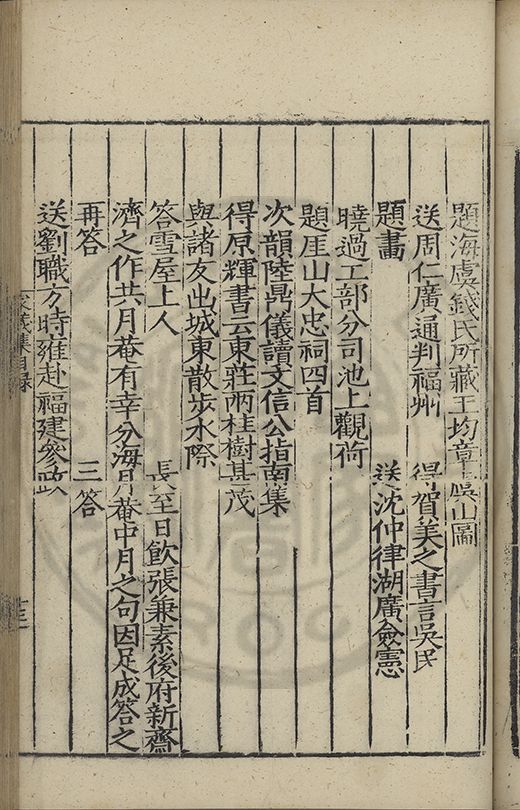 題海虞錢氏所藏王均章吳山圖
送周仁廣通判福州 得賀美之書言吳民
題畵 送沈仲律湖廣僉憲
曉過工部分司池上觀荷
題厓山大忠祠四首
次韻陸鼎儀讀文信公指南集
得原輝書云東莊兩桂樹甚茂
與諸友出城東散步水際
答雪屋上人 長至日飲張兼素後府新齋
濟之作共月菴有幸分海月菴中月之句因足成答之
再答 三答
送劉職方時雍赴福建參政